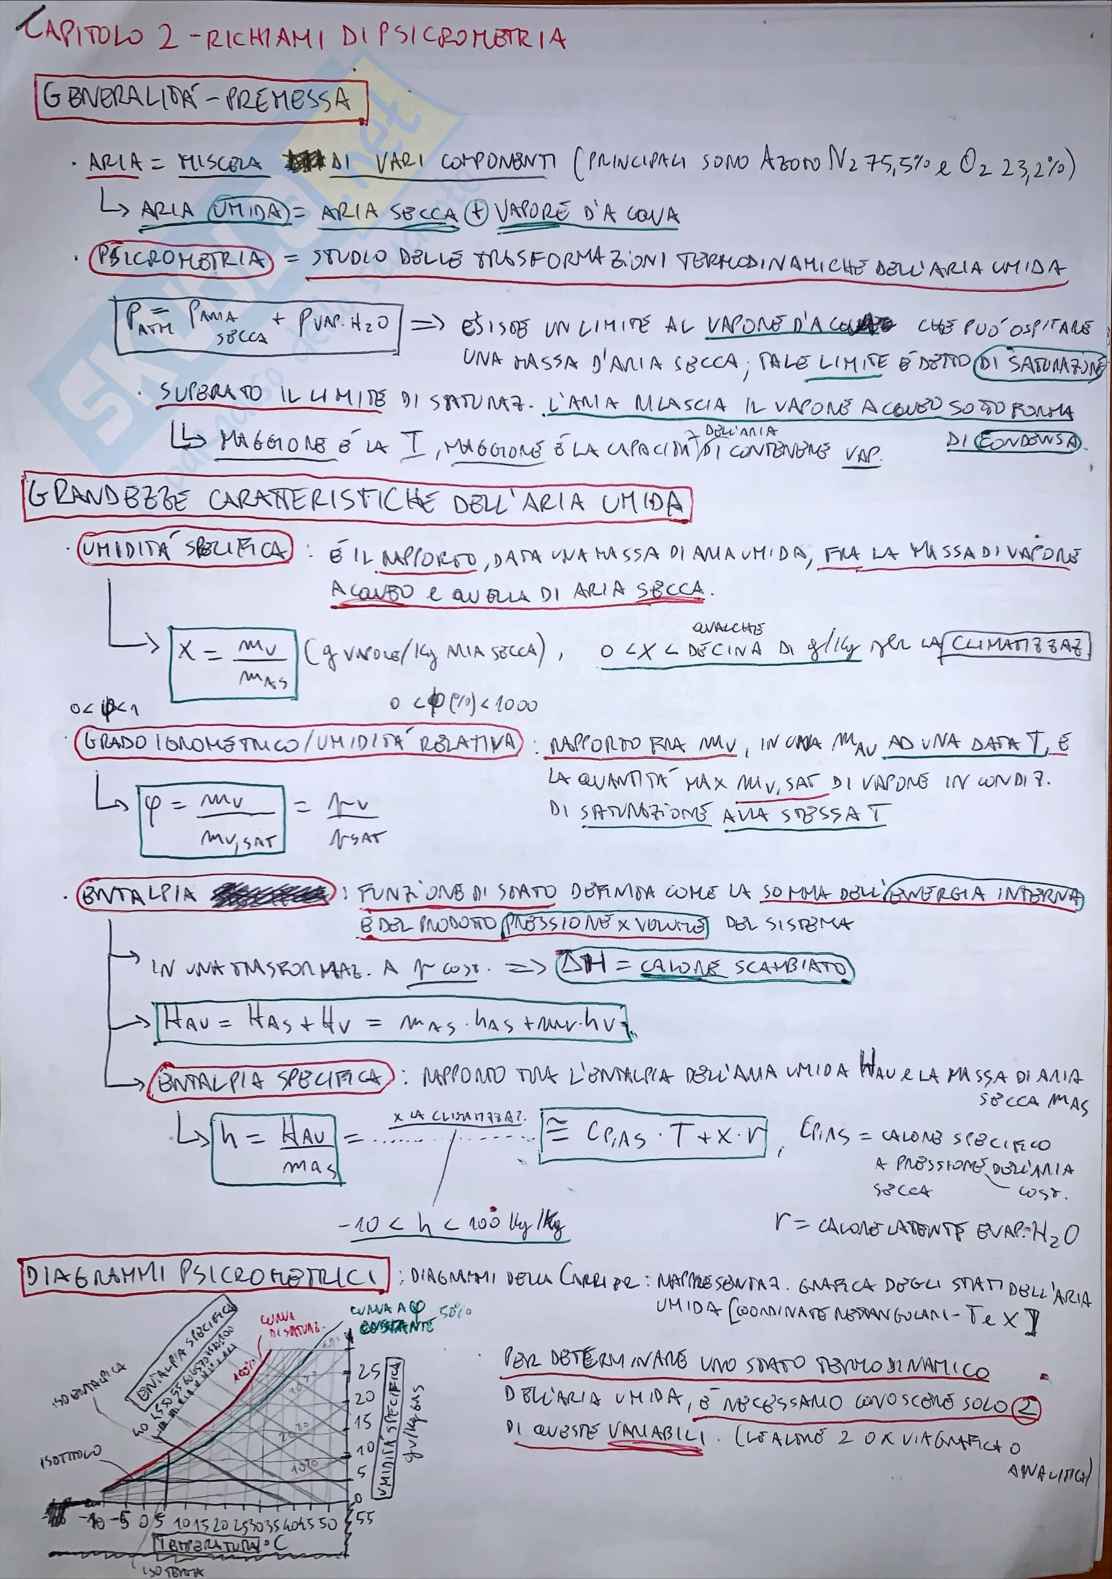 CAPITOLO 2 - RICHIAMI DI PSICROMETRIA
GENERALITÀ - PREMESSA
· ARIA = MISCELA DI VARI COMPONENTI (PRINCIPALI SONO AZOTO N2 75,5% e O2 23,2%)
↳ ARIA UMIDA = ARIA SECCA + VAPORE D'ACQUA
· PSICROMETRIA = STUDIO DELLE TRASFORMAZIONI TERMODINAMICHE DELL'ARIA UMIDA
PATM = PARIA SECCA + PVAP. H2O => ESISTE UN LIMITE AL VAPORE D'ACQUA CHE PUÒ OSPITARE
UNA MASSA D'ARIA SECCA; TALE LIMITE È DETTO DI SATURAZIONE
· SUPERATO IL LIMITE DI SATURAZ. L'ARIA RILASCIA IL VAPORE ACQUEO SOTTO FORMA
DI CONDENSA.
↳ MAGGIORE È LA T, MAGGIORE È LA CAPACITÀ DELL'ARIA DI CONTENERE VAP.
GRANDEZZE CARATTERISTICHE DELL'ARIA UMIDA
· UMIDITÀ SPECIFICA : È IL RAPPORTO, DATA UNA MASSA DI ARIA UMIDA, FRA LA MASSA DI VAPORE
ACQUEO e QUELLA DI ARIA SECCA.
X = mV/mAS (g VAPORE/Kg ARIA SECCA), 0 < X < QUALCHE DECINA DI g/Kg per LA CLIMATIZZAZ
0 < φ < 1 0 < φ(%) < 1000
· GRADO IGROMETRICO/UMIDITÀ RELATIVA : RAPPORTO FRA mV, IN UNA mAU AD UNA DATA T, E
LA QUANTITÀ MAX mV,SAT DI VAPORE IN CONDIZ.
DI SATURAZIONE ALLA STESSA T
↳ φ = mV/mV,SAT = pV/pSAT
· ENTALPIA : FUNZIONE DI STATO DEFINITA COME LA SOMMA DELL'ENERGIA INTERNA
E DEL PRODOTTO PRESSIONE X VOLUME DEL SISTEMA
→ IN UNA TRASFORMAZ. A p COST. => ΔH = CALORE SCAMBIATO
→ HAU = HAS + HV = mAS · hAS + mV · hV
→ ENTALPIA SPECIFICA : RAPPORTO TRA L'ENTALPIA DELL'ARIA UMIDA HAU e LA MASSA DI ARIA
SECCA mAS
↳ h = HAU/mAS = X LA CLIMATIZZAZ. ≅ CP,AS · T + X · r , CP,AS = CALORE SPECIFICO
A PRESSIONE COST. DELL'ARIA
SECCA
-10 < h < 100 Kg/Kg
r = CALORE LATENTE EVAP. H2O
DIAGRAMMI PSICROMETRICI : DIAGRAMMI DELLA CARRIER : RAPPRESENTAZ. GRAFICA DEGLI STATI DELL'ARIA
UMIDA [COORDINATE RETTANGOLARI - T e X]
PER DETERMINARE UNO STATO TERMODINAMICO
DELL'ARIA UMIDA, È NECESSARIO CONOSCERE SOLO 2
DI QUESTE VARIABILI. (LE ALTRE 2 O X VIA GRAFICA O
ANALITICA)
ENTALPIA SPECIFICA
CURVA DI SATURAZ.
CURVA A φ COSTANTE 50%
100%
ISOENTALPICA
ISOTITOLO
40
25
20
15
10
5
0
UMIDITÀ SPECIFICA
gV/Kg AS
-10 -5 0 5 10 15 20 25 30 35 40 45 50 55
TEMPERATURA °C
ISOTERMA